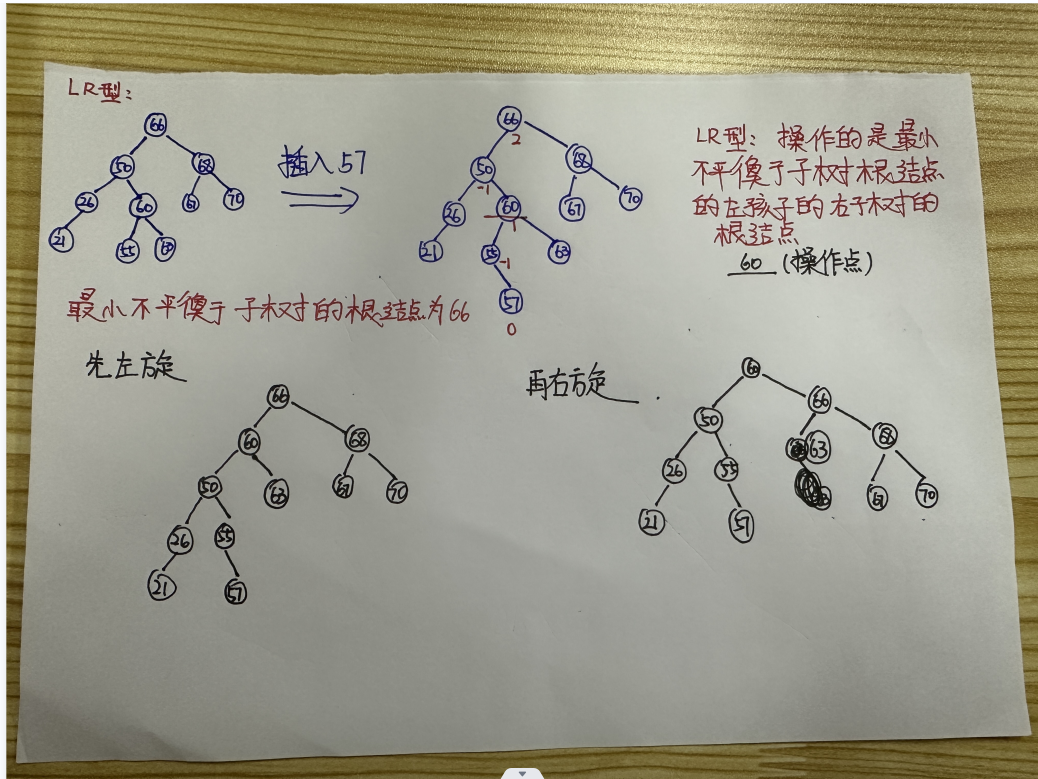 LR型：
66
50 68
26 60 67 70
21 55 63
插入57
66
2
50 68
-1
26 60 67 70
1
21 55 63
-1
57
0
LR型：操作的是最小
不平衡子树根结点
的左孩子的右子树的
根结点
60（操作点）
最小不平衡子树的根结点为66
先左旋
66
60 68
50 63 67 70
26 55
21 57
再右旋
60
50 66
26 55 63 68
21 57 67 70